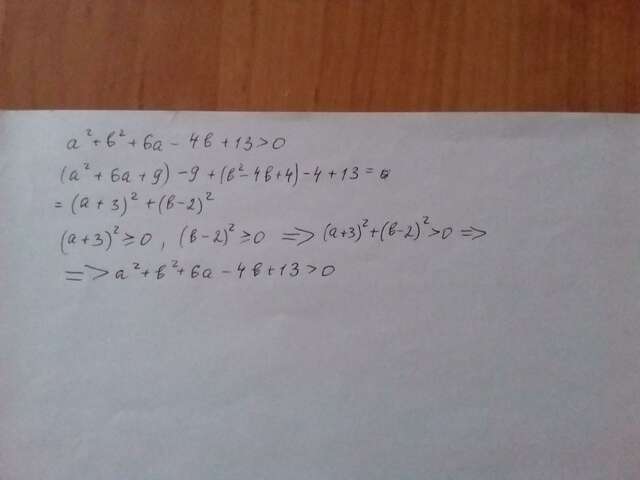 a²+в²+6a-4в+13>0
(a²+6a+9)-9+(в²-4в+4)-4+13=
=(a+3)²+(в-2)²
(a+3)²≥0, (в-2)²≥0 => (a+3)²+(в-2)²>0 =>
=> a²+в²+6a-4в+13>0